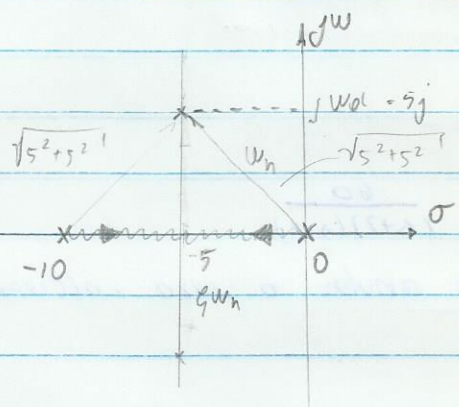 jω
jωd = 5j
√5²+5²
ωn
√5²+5²
σ
-10
-5
0
ζωn